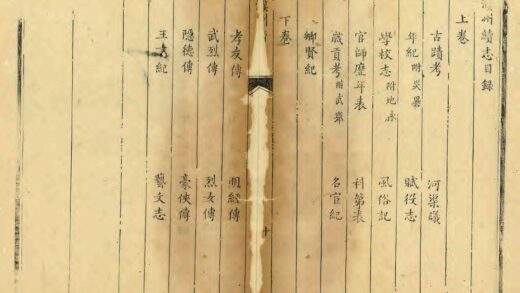 州續志目錄
上卷
古蹟考 河渠議
年紀附災異 賦役志
學校志附地脉 風俗記
官師歷年表 科第表
歲貢考附武舉 名宦紀
鄉賢紀
下卷
孝友傳 明經傳
武烈傳 烈女傳
隱德傳 豪俠傳
藝文志